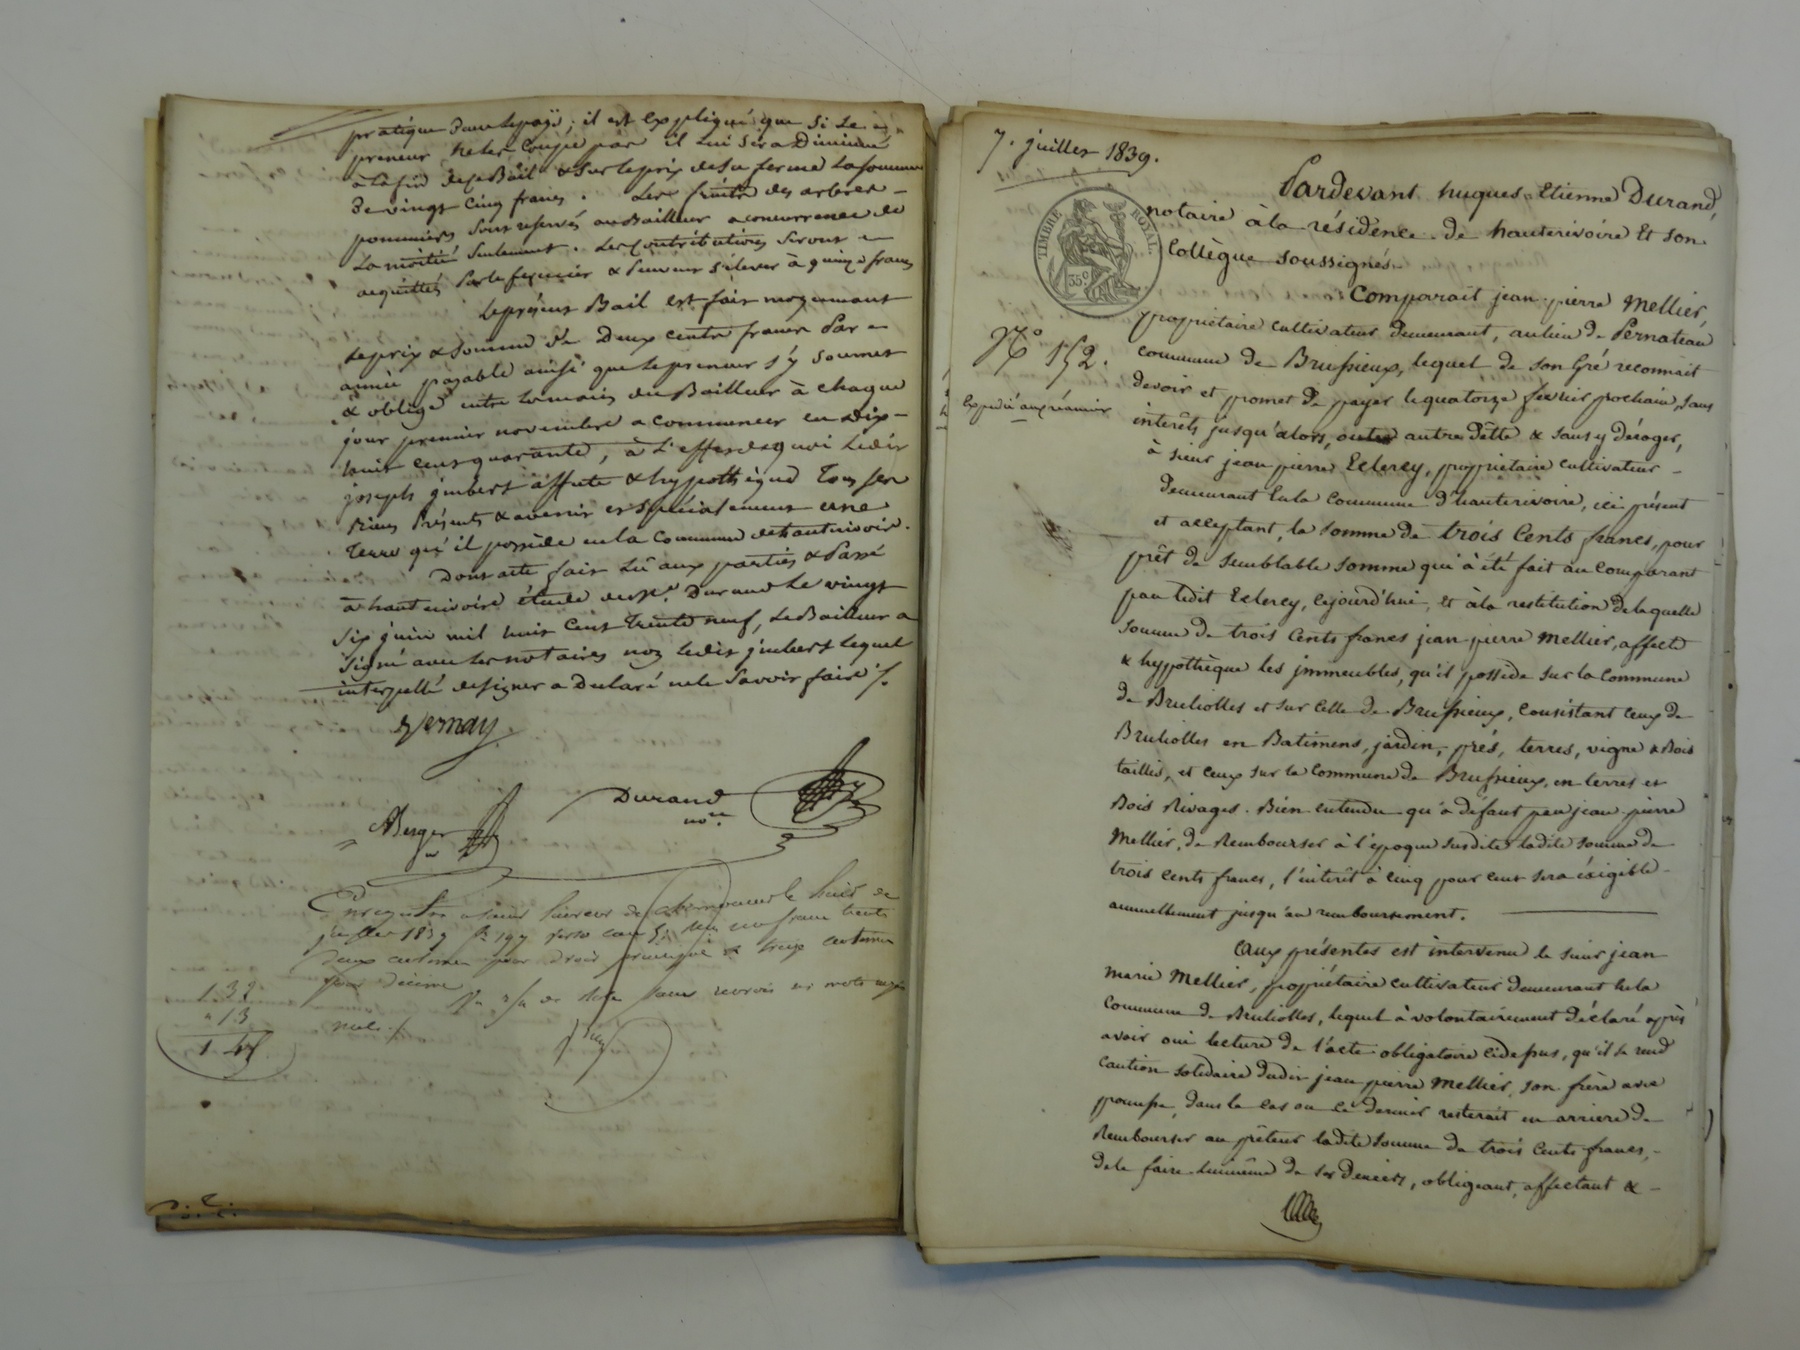 pratiqué dans le pays; il est expliqué que si le
preneur ne les coupe pas il lui sera diminué
à la fin de ce Bail & sur le prix de sa ferme la somme
de vingt cinq francs. Les fruits des arbres -
pommiers sont réservés au Bailleur a concurrence de
la moitié seulement. Les Contributions seront
acquittés par le fermier & peuvent s'élever à quinze francs
Le présent Bail est fait moyennant
le prix & somme de Deux cents francs Par
année payable ainsi que le preneur s'y soumet
& oblige entre les mains du Bailleur à chaque
jour premier novembre a commencer en dix-
huit cent quarante, à l'effet de quoi ledit
joseph jmbert affecte & hypothèque tous ses
biens Présents & avenir et spécialement une
terre qu'il possède en la Commune de hauterivoire.
Dont acte fait lû aux parties & Passé
à hauterivoire étude de Me. Durand Le vingt
six juin mil huit Cent trente neuf, Le Bailleur a
signé avec les notaires non ledit jmbert lequel
interpellé de signer a Declaré ne le savoir faire /.
Vernay
Durand
nore
ABerger
Enregistré a Saint Laurent de Chamousset le huit
juillet 1839 fo 197 verso case 5, reçu un franc trente
deux centimes pour droit principal & treize centimes
pour décime
nuls /.
1 32
" 13
1 45
7. juillet 1839.
TIMBRE ROYAL
35c
No 152.
Expedié aux réunies
Pardevant hugues=Etienne Durand,
notaire à la résidence de hauterivoire Et son
Collègue soussignés.
Comparait jean-pierre Mellier,
propriétaire cultivateur demeurant, au lieu de Pernateau
commune de Brussieux, lequel de son Gré reconnait
devoir et promet de payer le quatorze février prochain, sans
interêts jusqu'alors, outre autre dêtte & sans y déroger,
à sieur jean pierre Eclercy, propriétaire cultivateur -
demeurant En la Commune d'hauterivoire, ici présent
et acceptant, la somme de trois Cents francs, pour
prêt de semblable somme qui à été fait au Comparant
pau ledit Eclercy, cejourd'hui, et à la restitution de laquelle
somme de trois Cents francs jean pierre Mellier, affecte
& hyppothèque les jmmeubles, qu'il possède sur la Commune
de Brulliolles et sur Celle de Brussieux, Consistant Ceux de
Brulliolles en Batimens, jardin, prés, terres, vigne & Bois
taillis, et Ceux sur la Commune de Brussieux, en terres et
Bois Rivages. Bien entendu qu'a défaut pau jean-pierre
Mellier, de Rembourser à l'époque susdite ladite somme de
trois Cents francs, l'intérêt à Cinq pour Cent sera éxigible -
annuellement jusqu'au remboursement.
Aux présentes est intervenu le sieur jean
marie Mellier, propriétaire cultivateur demeurant En la
Commune de Brulliolles, lequel à volontairement déclaré après
avoir oui lecture de l'acte obligatoire Cidessus, qu'il se rend
Caution solidaire dudit jean pierre Mellier, son frère avec
promesse, dans le Cas ou Ce dernier resterait en arriere de
Rembourser au prêteur ladite somme de trois Cents francs, -
de le faire luimême de ses Deniers, obligeant, affectant & -